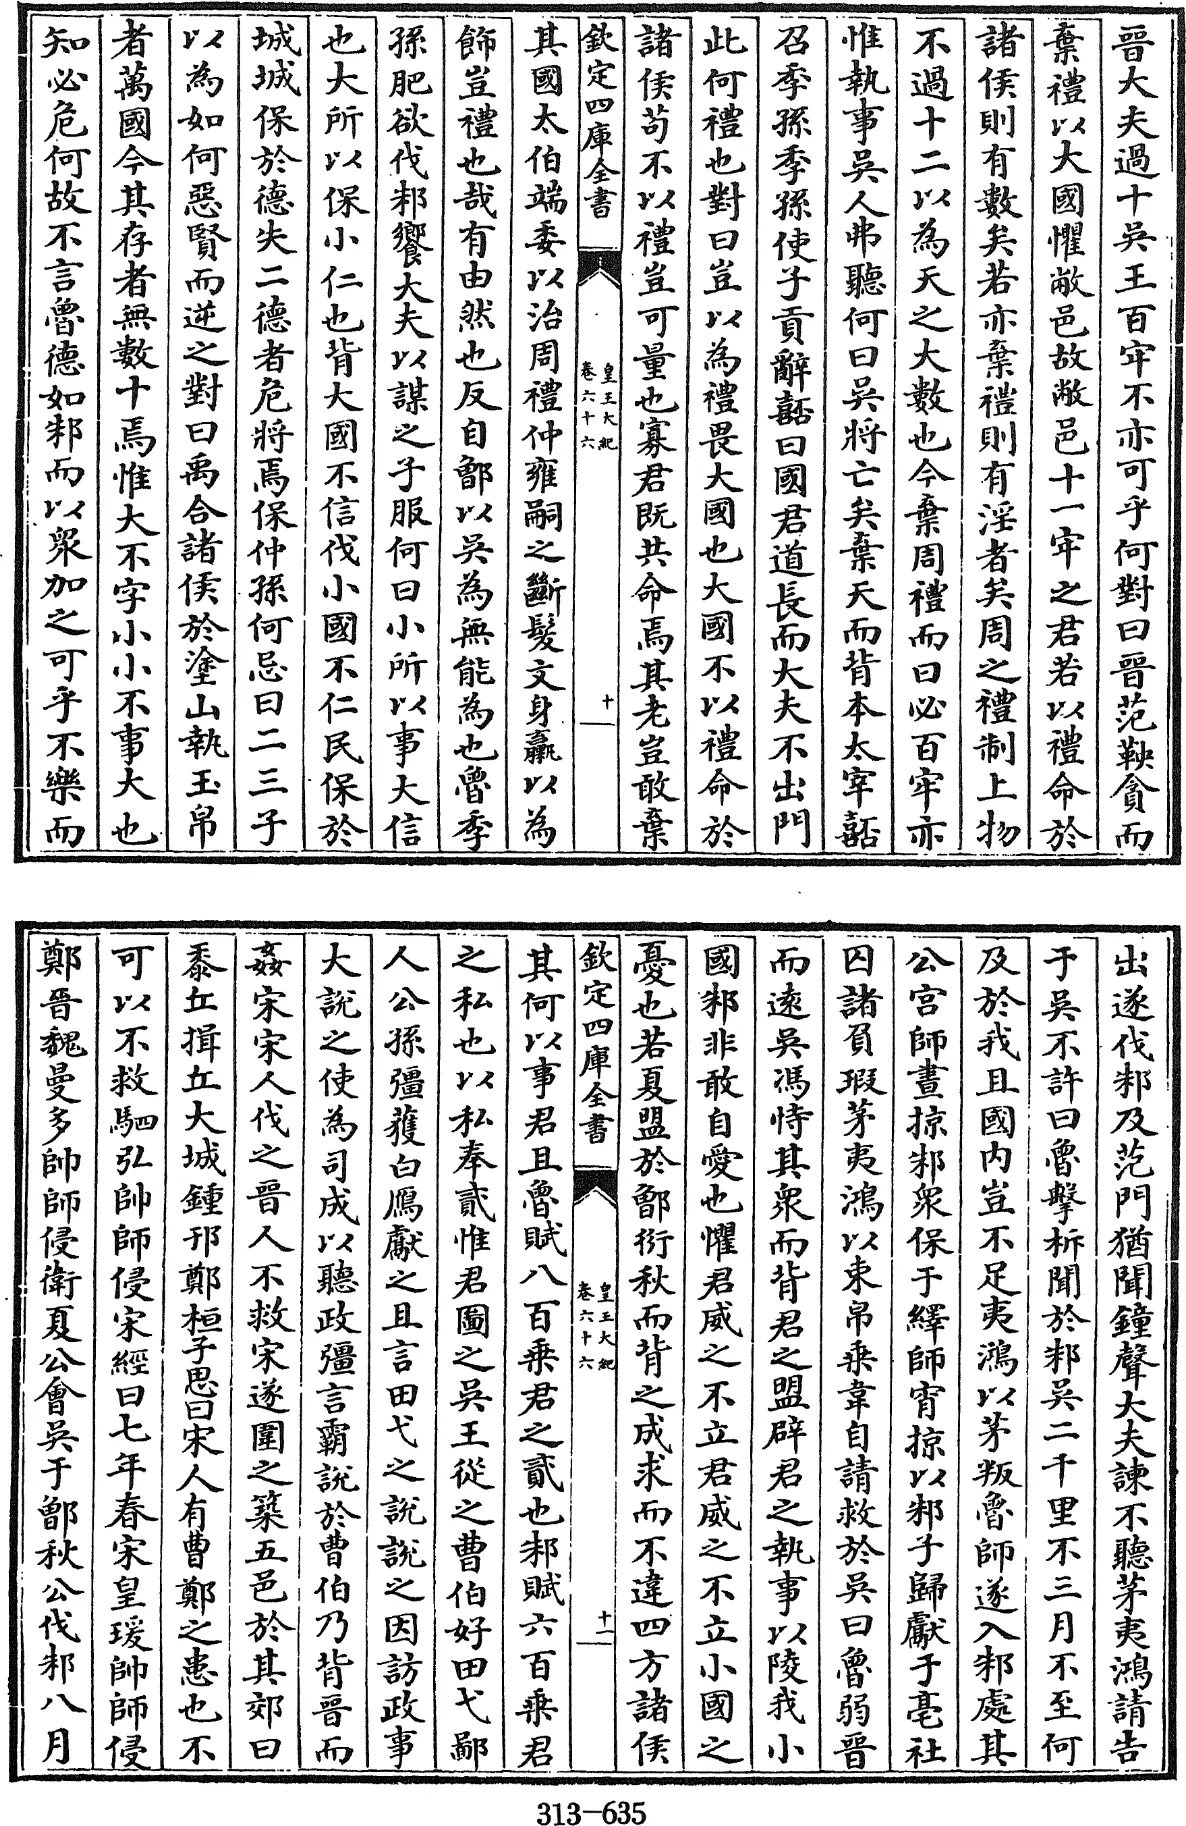 晉大夫過十吳王百牢不亦可乎何對曰晉范鞅貪而
棄禮以大國懼敝邑故敝邑十一牢之君若以禮命於
諸侯則有數矣若亦棄禮則有淫者矣周之禮制上物
不過十二以為天之大數也今棄周禮而曰必百牢亦
惟執事吳人弗聽何曰吳將亡矣棄天而背本太宰嚭
召季孫季孫使子貢辭嚭曰國君道長而大夫不出門
此何禮也對曰豈以為禮畏大國也大國不以禮命於
諸侯苟不以禮豈可量也寡君既共命焉其老豈敢棄
欽定四庫全書
皇王大紀
卷六十六
十
其國太伯端委以治周禮仲雍嗣之斷髮文身臝以為
飾豈禮也哉有由然也反自鄫以吳為無能為也魯季
孫肥欲伐邾饗大夫以謀之子服何曰小所以事大信
也大所以保小仁也背大國不信伐小國不仁民保於
城城保於德失二德者危將焉保仲孫何忌曰二三子
以為如何惡賢而逆之對曰禹合諸侯於塗山執玉帛
者萬國今其存者無數十焉惟大不字小小不事大也
知必危何故不言魯德如邾而以衆加之可乎不樂而
出遂伐邾及范門猶聞鐘聲大夫諫不聽茅夷鴻請告
于吳不許曰魯擊柝聞於邾吳二千里不三月不至何
及於我且國內豈不足夷鴻以茅叛魯師遂入邾處其
公宮師晝掠邾衆保于繹師宵掠以邾子歸獻于亳社
囚諸負瑕茅夷鴻以束帛乘韋自請救於吳曰魯弱晉
而遠吳馮恃其衆而背君之盟辟君之執事以陵我小
國邾非敢自愛也懼君威之不立君威之不立小國之
憂也若夏盟於鄫衍秋而背之成求而不違四方諸侯
欽定四庫全書
皇王大紀
卷六十六
十一
其何以事君且魯賦八百乘君之貳也邾賦六百乘君
之私也以私奉貳惟君圖之吳王從之曹伯好田弋鄙
人公孫彊獲白鴈獻之且言田弋之說說之因訪政事
大說之使為司成以聽政彊言霸說於曹伯乃背晉而
姦宋宋人伐之晉人不救宋遂圍之築五邑於其郊曰
黍丘揖丘大城鍾邘鄭桓子思曰宋人有曹鄭之患也不
可以不救駟弘帥師侵宋經曰七年春宋皇瑗帥師侵
鄭晉魏曼多帥師侵衛夏公會吳于鄫秋公伐邾八月
313-635